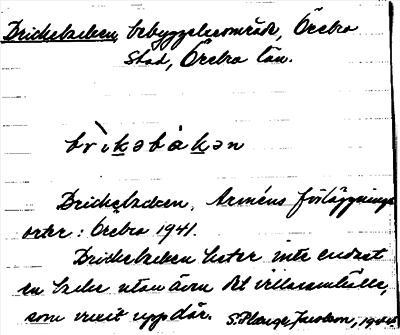 Brickebacken, bebyggelseområde, Örebro
stad, Örebro län.
brìkəbàkən
Brickebacken. Arméns förläggnings
orter: Örebro 1941.
Brickebacken heter inte endast
en backe utan även det villasamhälle,
som vuxit upp där. S. Plauge Jacobson, 1944